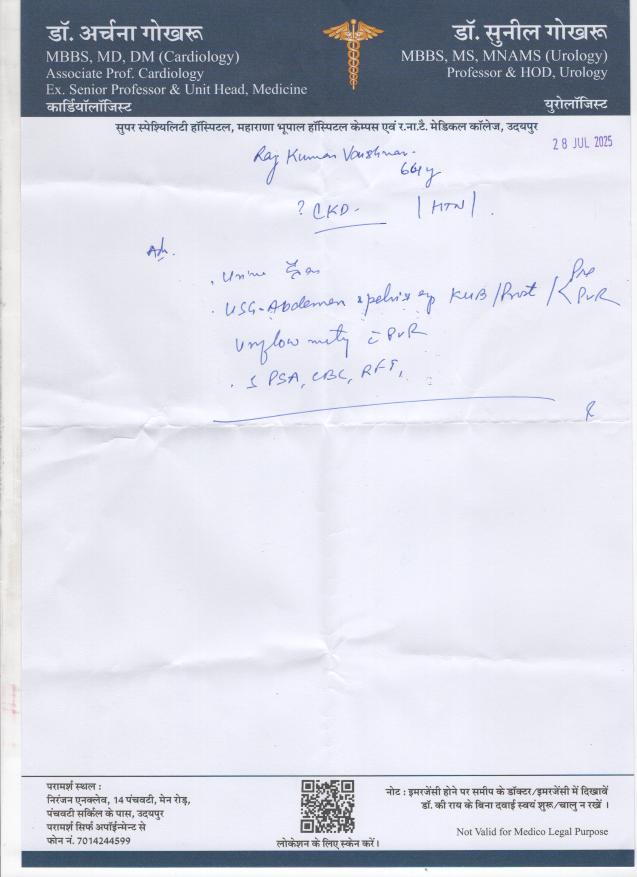 डॉ. अर्चना गोखरू
MBBS, MD, DM (Cardiology)
Associate Prof. Cardiology
Ex. Senior Professor & Unit Head, Medicine
कार्डियॉलॉजिस्ट
डॉ. सुनील गोखरू
MBBS, MS, MNAMS (Urology)
Professor & HOD, Urology
यूरोलॉजिस्ट
सुपर स्पेश्यिलिटी हॉस्पिटल, महाराणा भूपाल हॉस्पिटल कैम्पस एवं र.ना.टै. मेडिकल कॉलेज, उदयपुर
28 JUL 2025
Raj Kumar Vaishnav.
64y
? CKD - | HTN | .
Adv.
. Urine
. USG-Abdomen & pelvis KUB/Prost / < Pre PVR
Uroflowmetry c̄ PVR
. S PSA, CBC, RFT,
परामर्श स्थल :
निरंजन एनक्लेव, 14 पंचवटी, मेन रोड़,
पंचवटी सर्किल के पास, उदयपुर
परामर्श सिर्फ अपॉईन्मेन्ट से
फोन नं. 7014244599
लोकेशन के लिए स्केन करें।
नोट : इमरजेंसी होने पर समीप के डॉक्टर/इमरजेंसी में दिखावें
डॉ. की राय के बिना दवाई स्वयं शुरू/चालु न रखें ।
Not Valid for Medico Legal Purpose